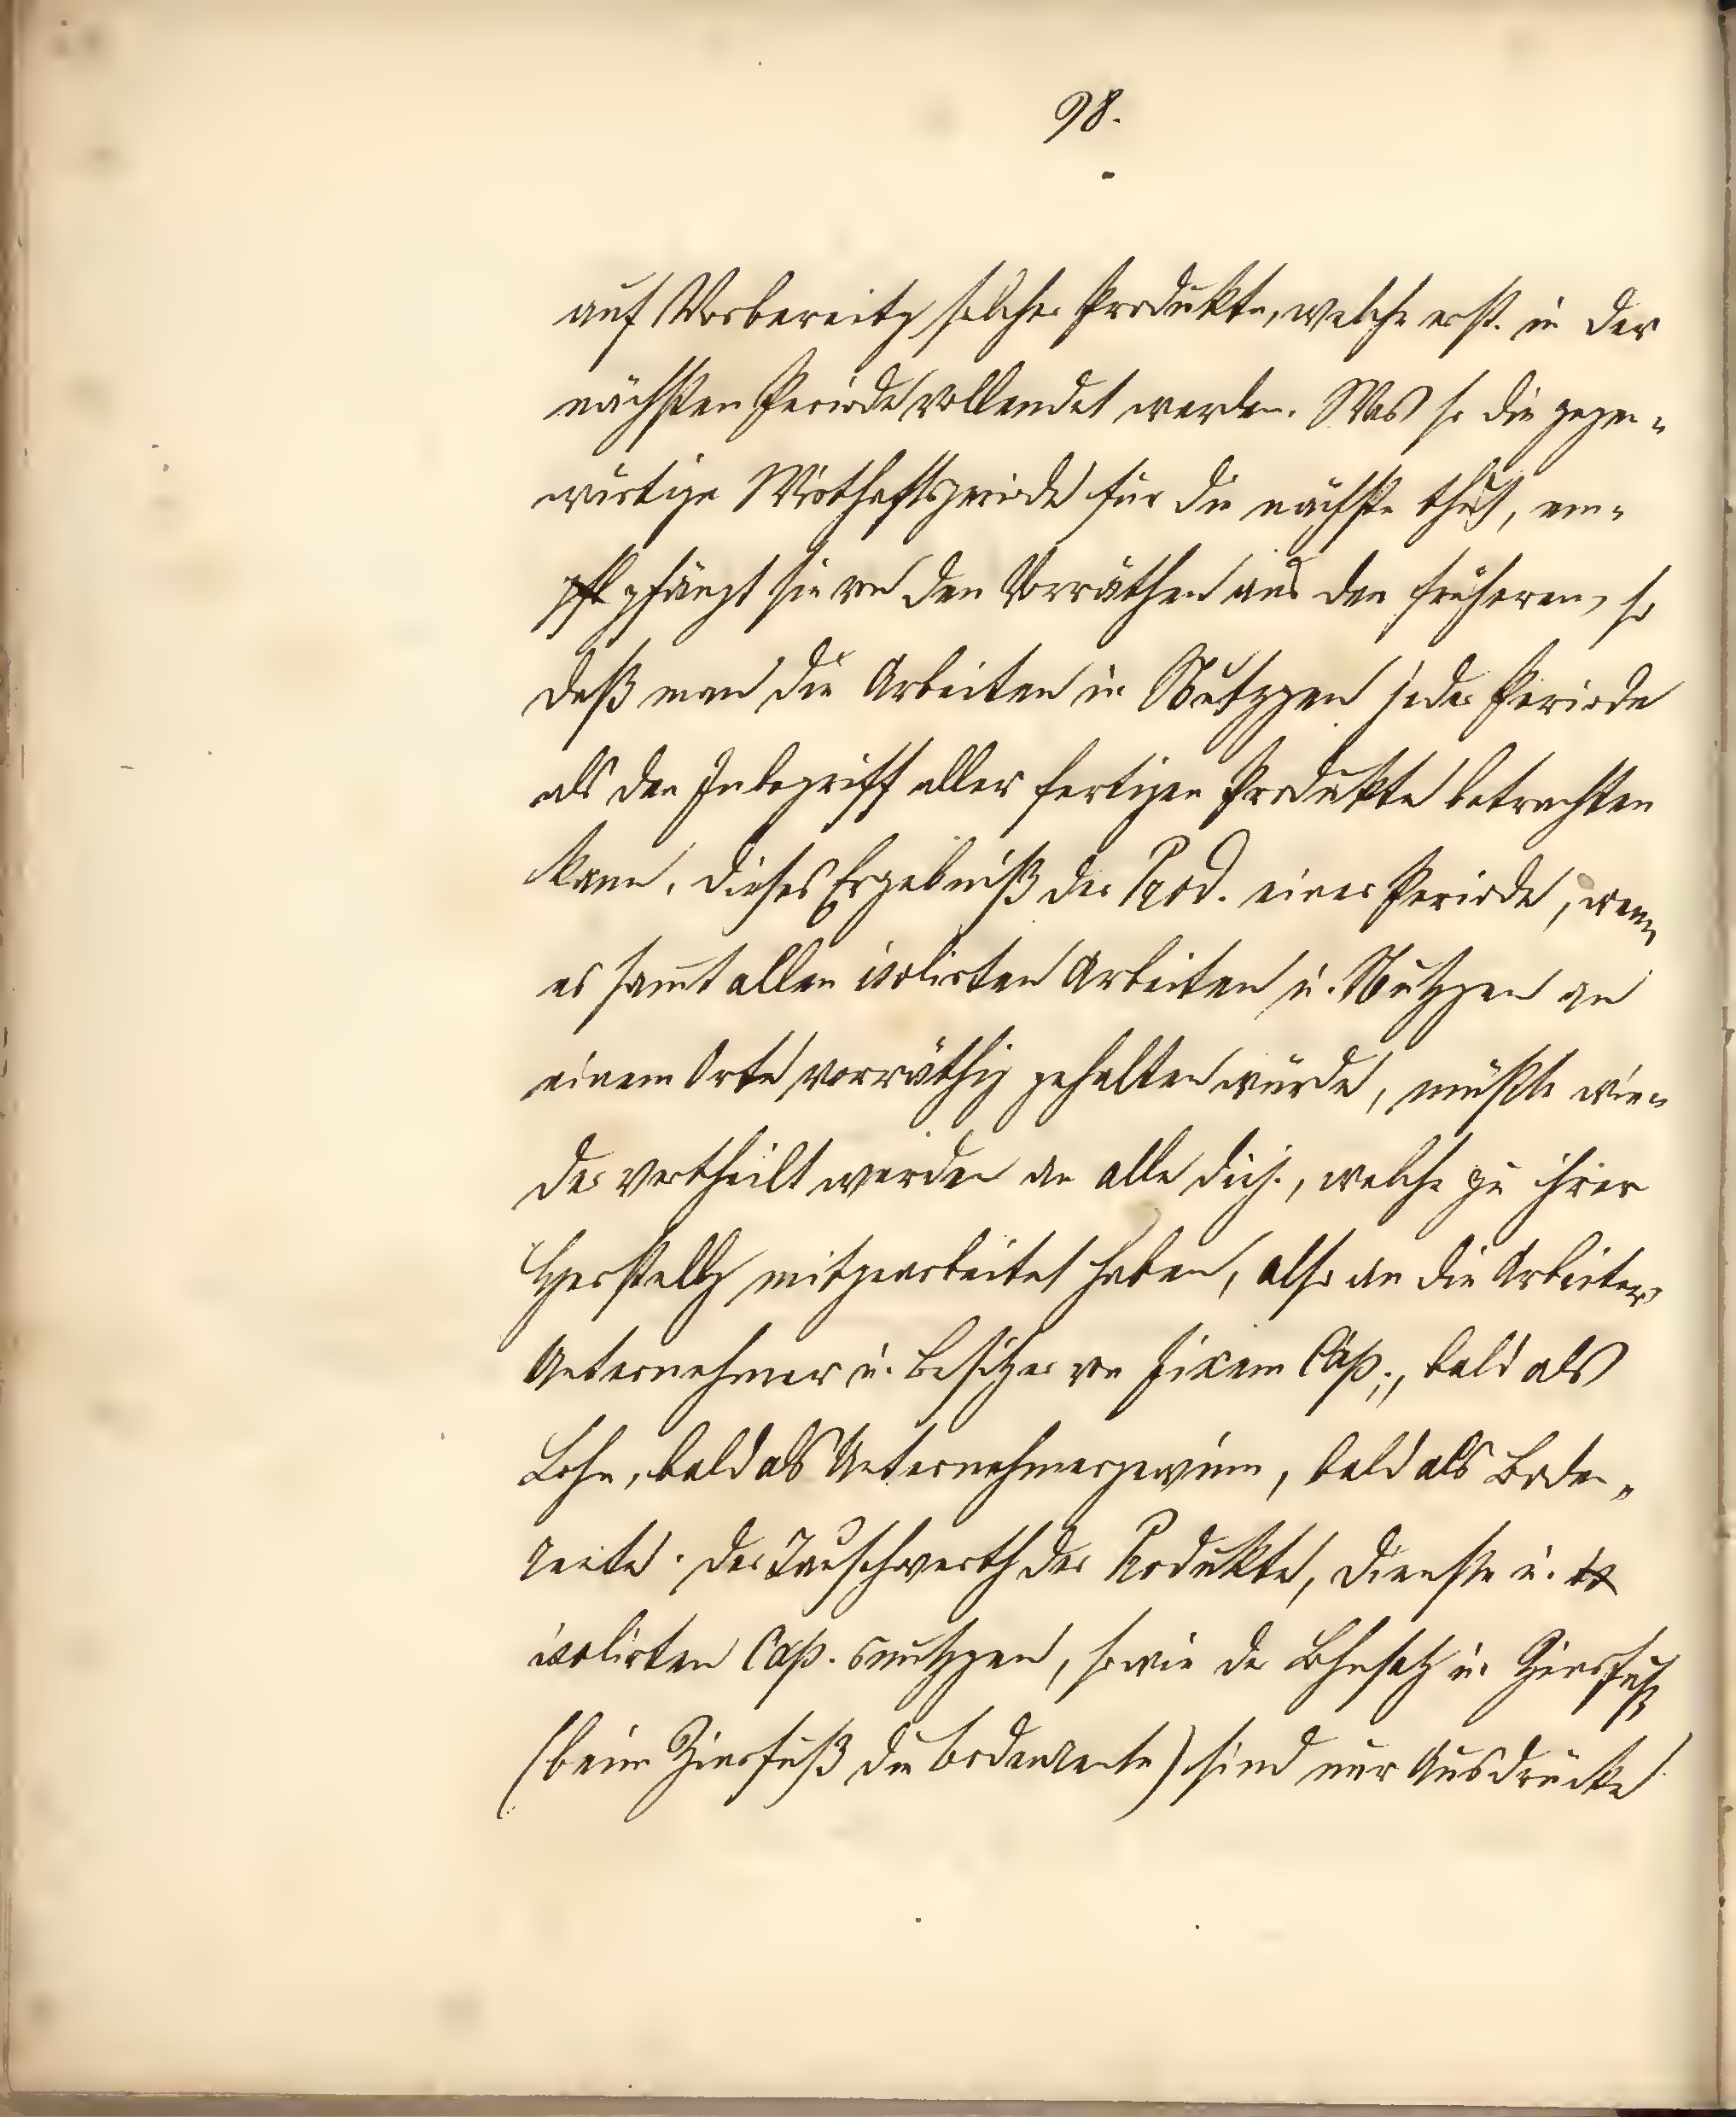 98.
auf Vorbereitg solcher Produkte, welche erst in der
nächsten Periode vollendet werden. Was so die gegen-
wärtige Wirthschaftsperiode für die nächste thut, em-
pfängt sie von den Vorräthen aus den früheren, so
daß man die Arbeiten u. Nutzgen jeder Periode
als den Inbegriff aller fertigen Produkte betrachten
kann. Dieses Ergebniß der Prod. einer Periode, wenn
es sammt allen isolirten Arbeiten u. Nutzgen an
einem Orte vorräthig gehalten würde, müßte wie-
der vertheilt werden an alle diej., welche zu ihrer
Herstellg mitgearbeitet haben, also an die Arbeiter,
Unternehmer u. Besitzer von fixem Cap., bald als
Lohn, bald als Unternehmergewinn, bald als Boden-
rente. Der Tauschwerth der Produkte, Dienste u.
isolirten Cap.snutzgen, sowie der Lohnsatz u. Zinsfuß
(beim Zinsfuß die Bodenrente) sind nur Ausdrücke